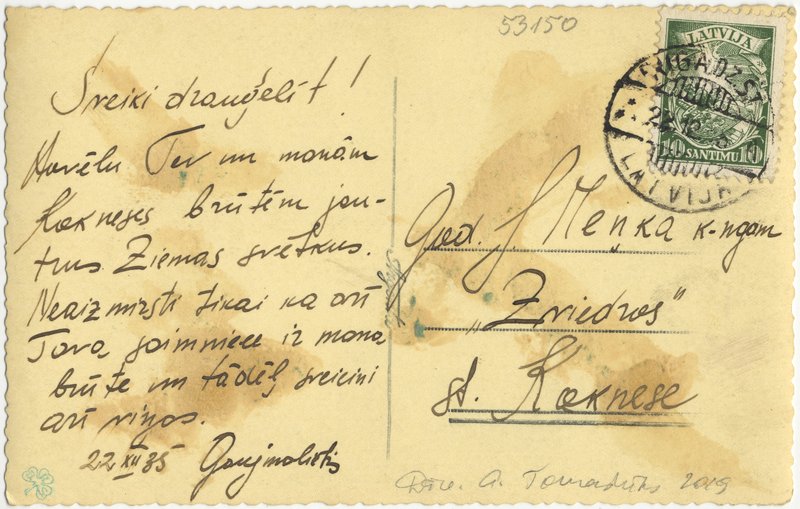 53150
LATVIJA
10 SANTIMU 10
LATVIJA
Sveiki draudzelīt!
Novēlu Tev un manām
Kokneses brūtēm jau-
trus Ziemas svētkus.
Neaizmirsti tikai ka arī
Tava saimniece ir mana
brūte un tādēļ sveicini
arī viņas.
22 XII 35
God. J Meņka k-ngam
"Zviedros"
st. Koknese
2019